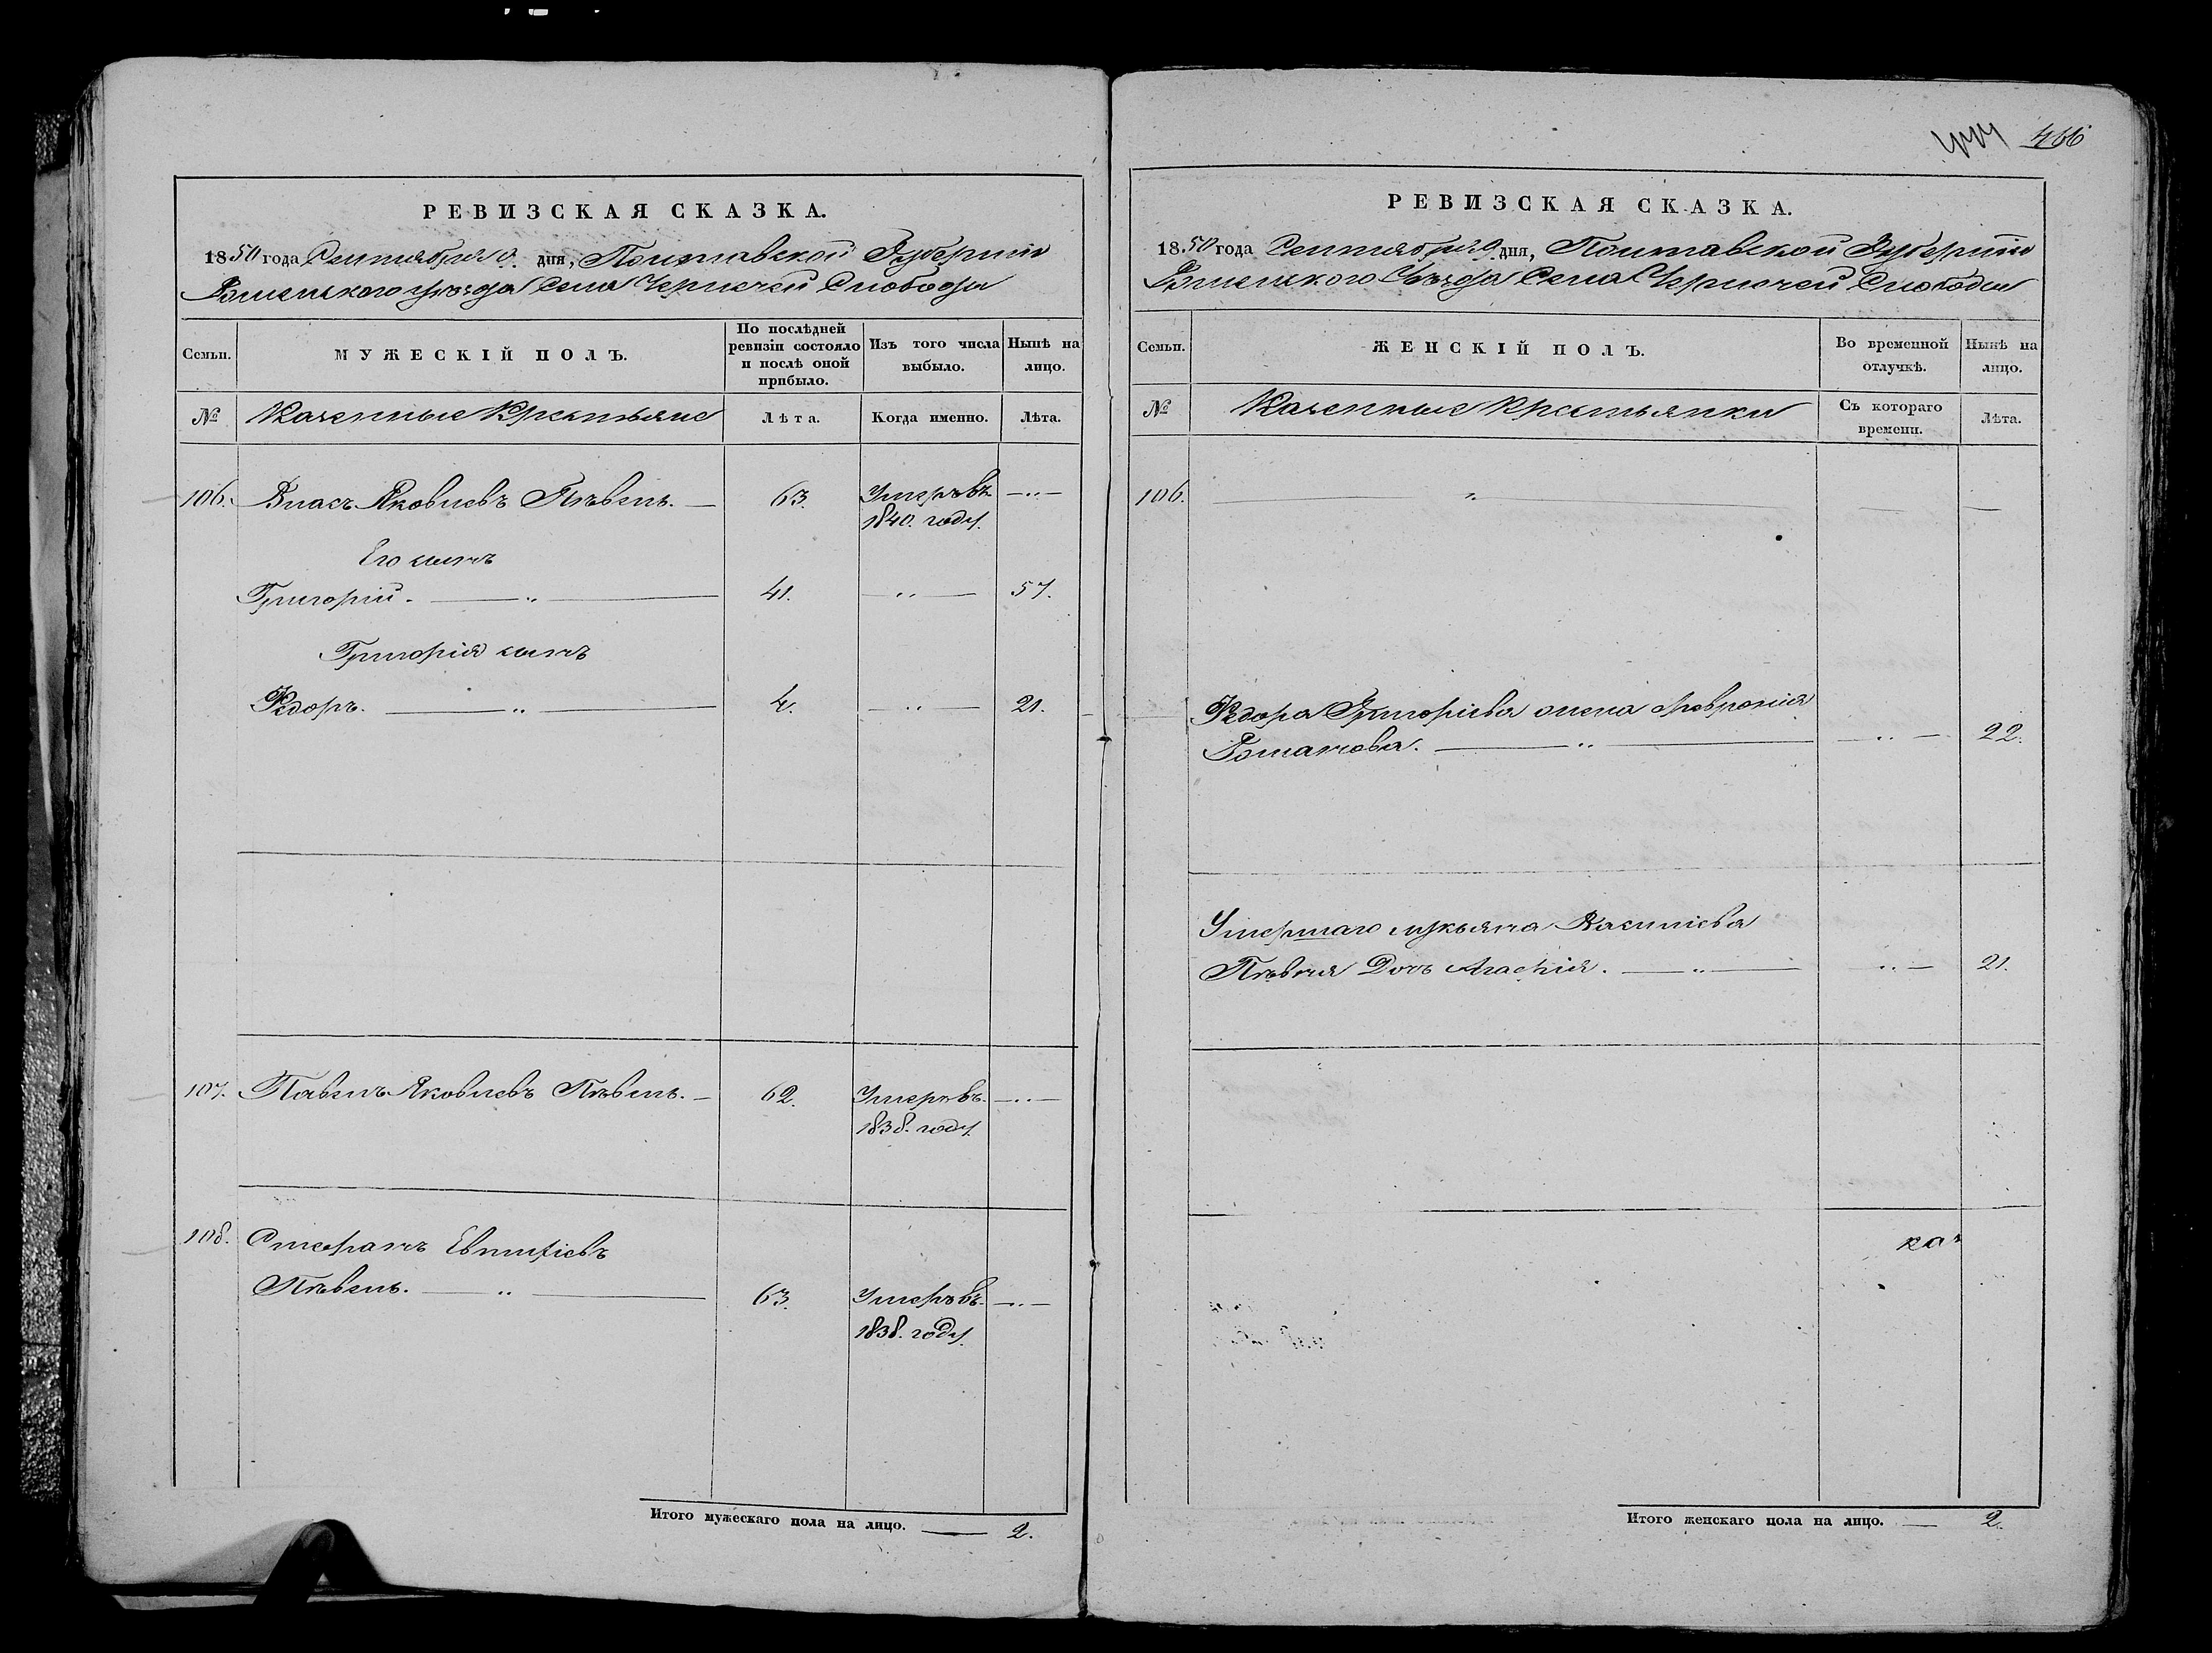 РЕВИЗСКАЯ СКАЗКА.
1850 года Сентября 9. дня, Полтавской Губернии
Роменского уѣзда Села Чернечей Слободы
Семьи.
МУЖЕСКІЙ ПОЛЪ.
По послѣдней ревизіи состояло и послѣ оной прибыло.
Изъ того числа выбыло.
Нынѣ на лицо.
№
Казенные Крестьяне
Лѣта.
Когда именно.
Лѣта.
106. Власъ Яковлевъ Пѣвень. — 63. Умеръ въ —..—
1840. году.
Его сынъ
Григорій. — 41. —..— 57.
Григорія сынъ
Ѳедоръ. — 4. —..— 21.
107. Павелъ Яковлевъ Пѣвень. — 62. Умеръ въ —..—
1838. году.
108. Стефанъ Евтифіевъ
Пѣвень. — 63. Умеръ въ —..—
1838. году.
Итого мужескаго пола на лицо. — 2.
466
РЕВИЗСКАЯ СКАЗКА.
1850 года Сентября 9 дня, Полтавской Губернии
Роменского Уѣзда Села Чернечей Слободы
Семьи.
ЖЕНСКІЙ ПОЛЪ.
Во временной отлучкѣ.
Нынѣ на лицо.
№
Казенные Крестьянки
Съ котораго времени.
Лѣта.
106.
Ѳедора Григоріева жена Февронія
Романова. — —..— 22.
Умершаго Лукьяна Василіева
Пѣвня Дочь Агафія. — ..— 21.
Итого женскаго пола на лицо. — 2.